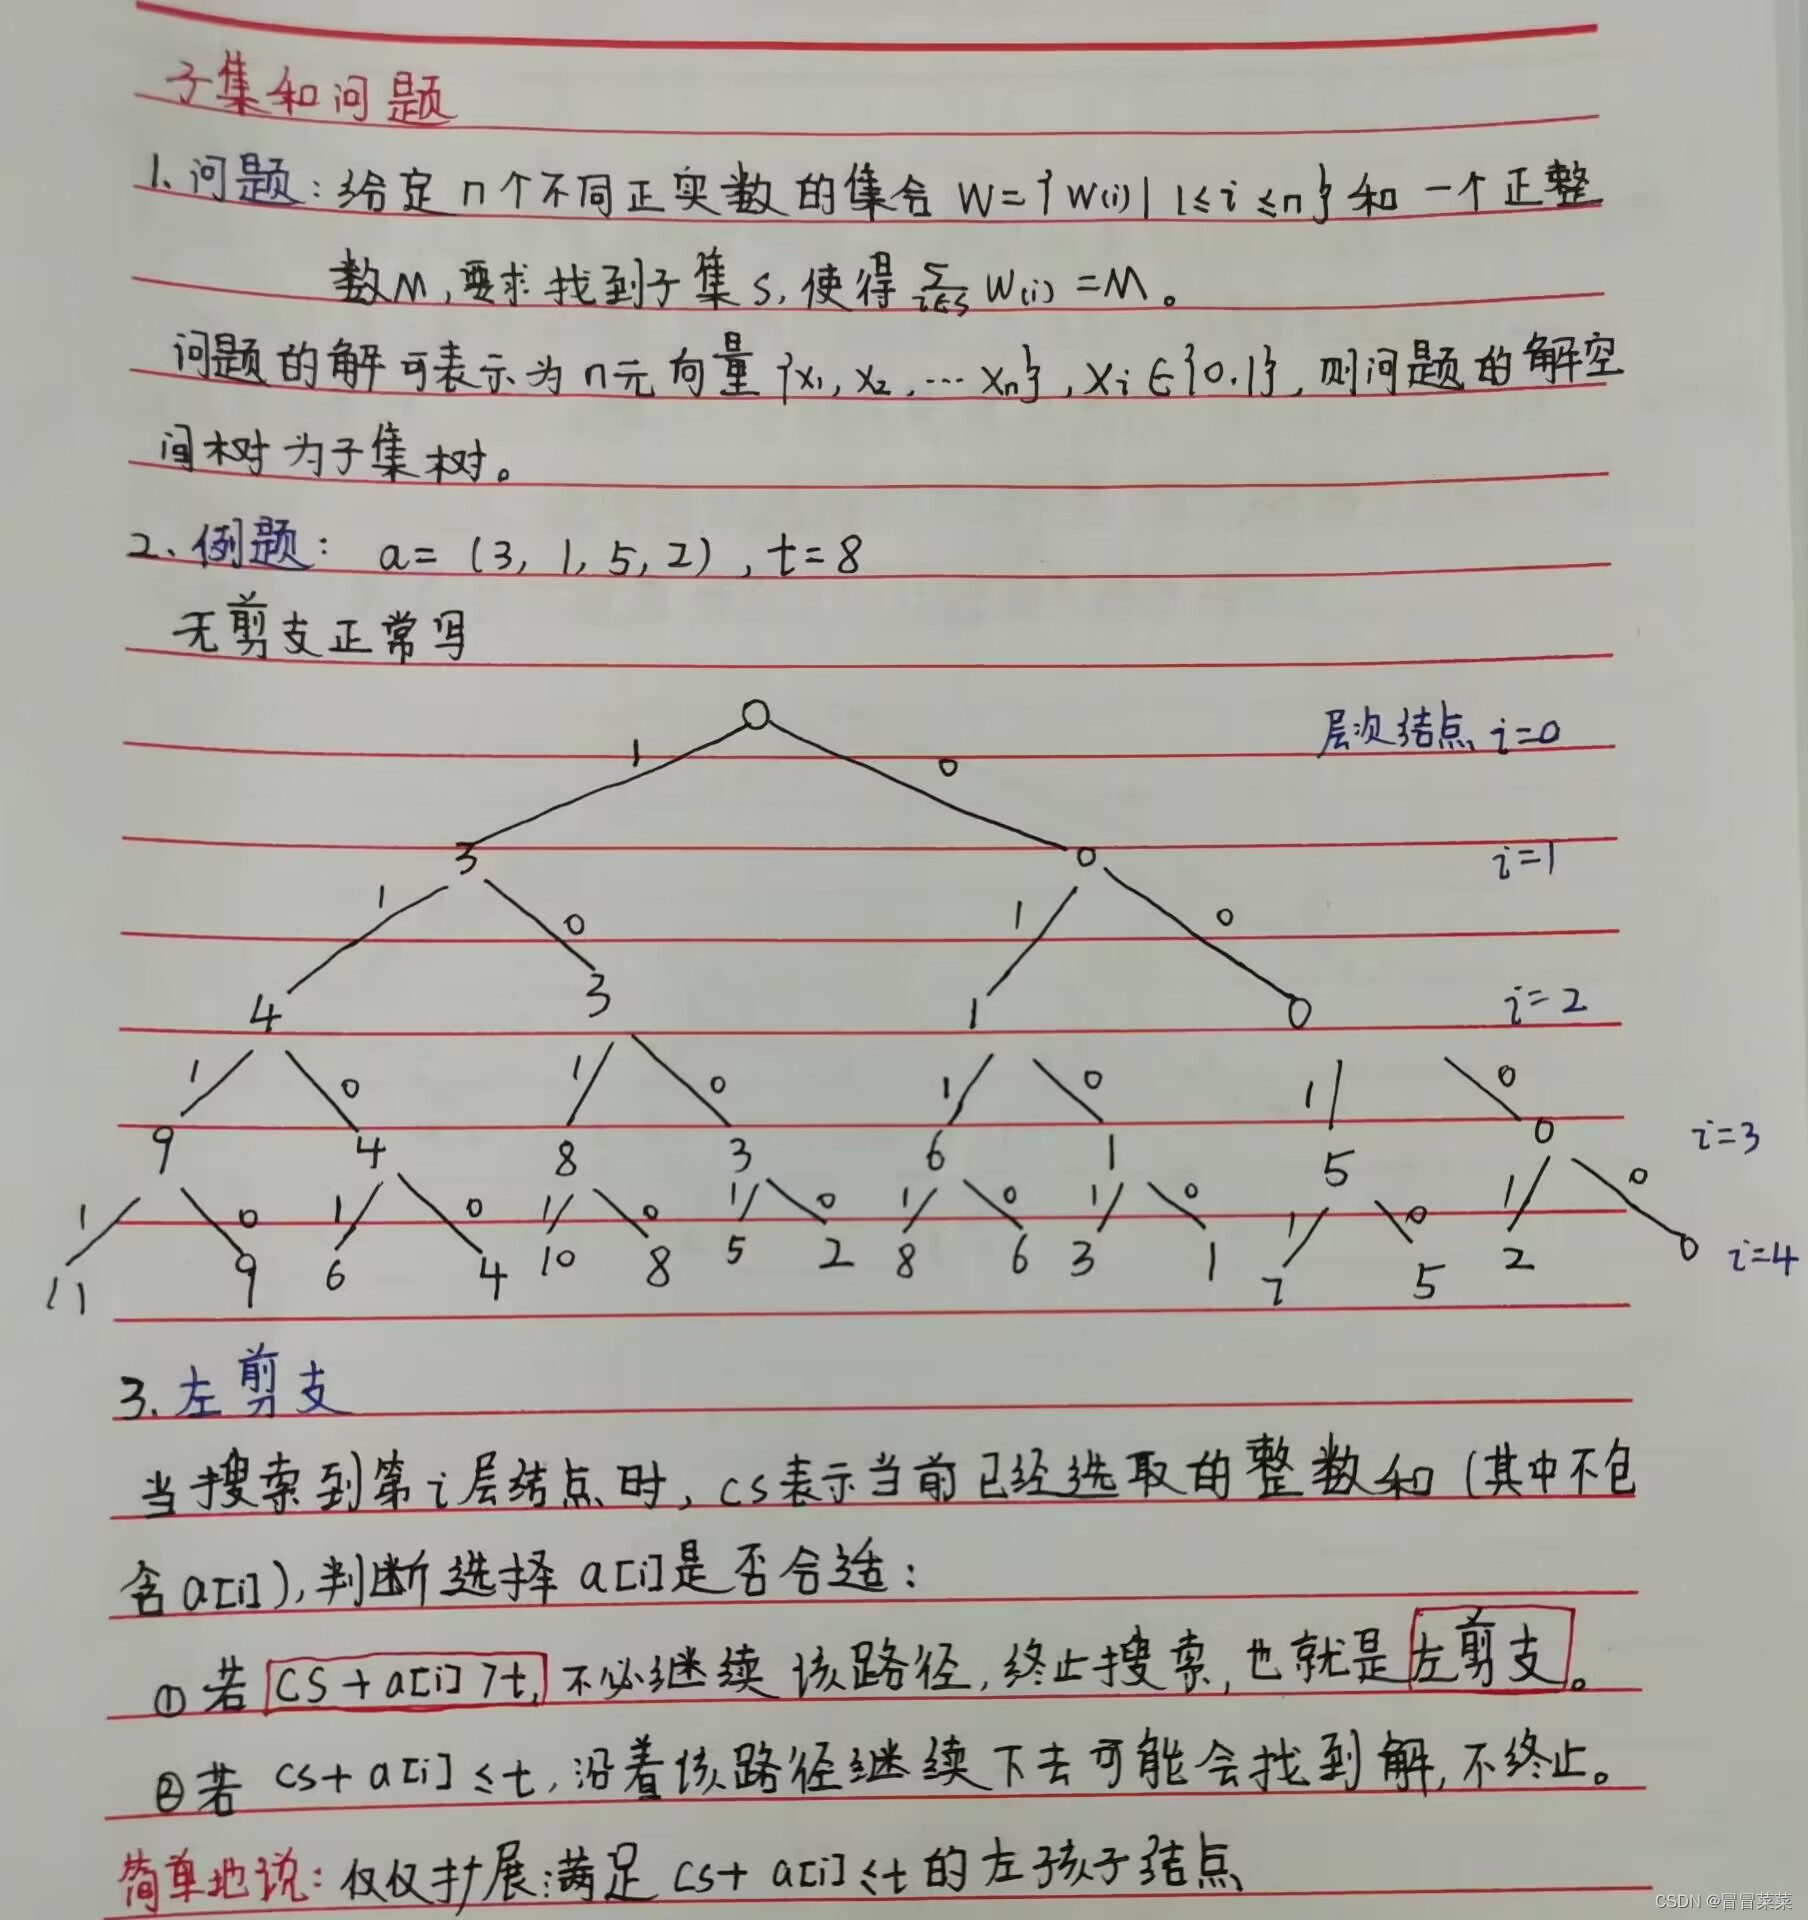 子集和问题
1、问题：给定n个不同正实数的集合 W={W(i)| 1≤i≤n}和一个正整
数M,要求找到子集S,使得∑i∈S W(i)=M。
问题的解可表示为n元向量{x1, x2, … xn}, xi∈{0.1},则问题的解空
间树为子集树。
2、例题： a=(3, 1, 5, 2), t=8
无剪支正常写
0 层次结点 i=0
1 0
3 0 i=1
1 0 1 0
4 3 1 0 i=2
1 0 1 0 1 0 1 0
9 4 8 3 6 1 5 0 i=3
1 0 1 0 1 0 1 0 1 0 1 0 1 0 1 0
11 9 6 4 10 8 5 2 8 6 3 1 7 5 2 0 i=4
3. 左剪支
当搜索到第i层结点时, cs表示当前已经选取的整数和(其中不包
含a[i]),判断选择a[i]是否合适:
①若 CS+a[i]>t, 不必继续该路径,终止搜索,也就是左剪支。
②若 cs+a[i]≤t,沿着该路径继续下去可能会找到解,不终止。
简单地说：仅仅扩展:满足 cs+a[i]≤t的左孩子结点
CSDN @冒冒菜菜